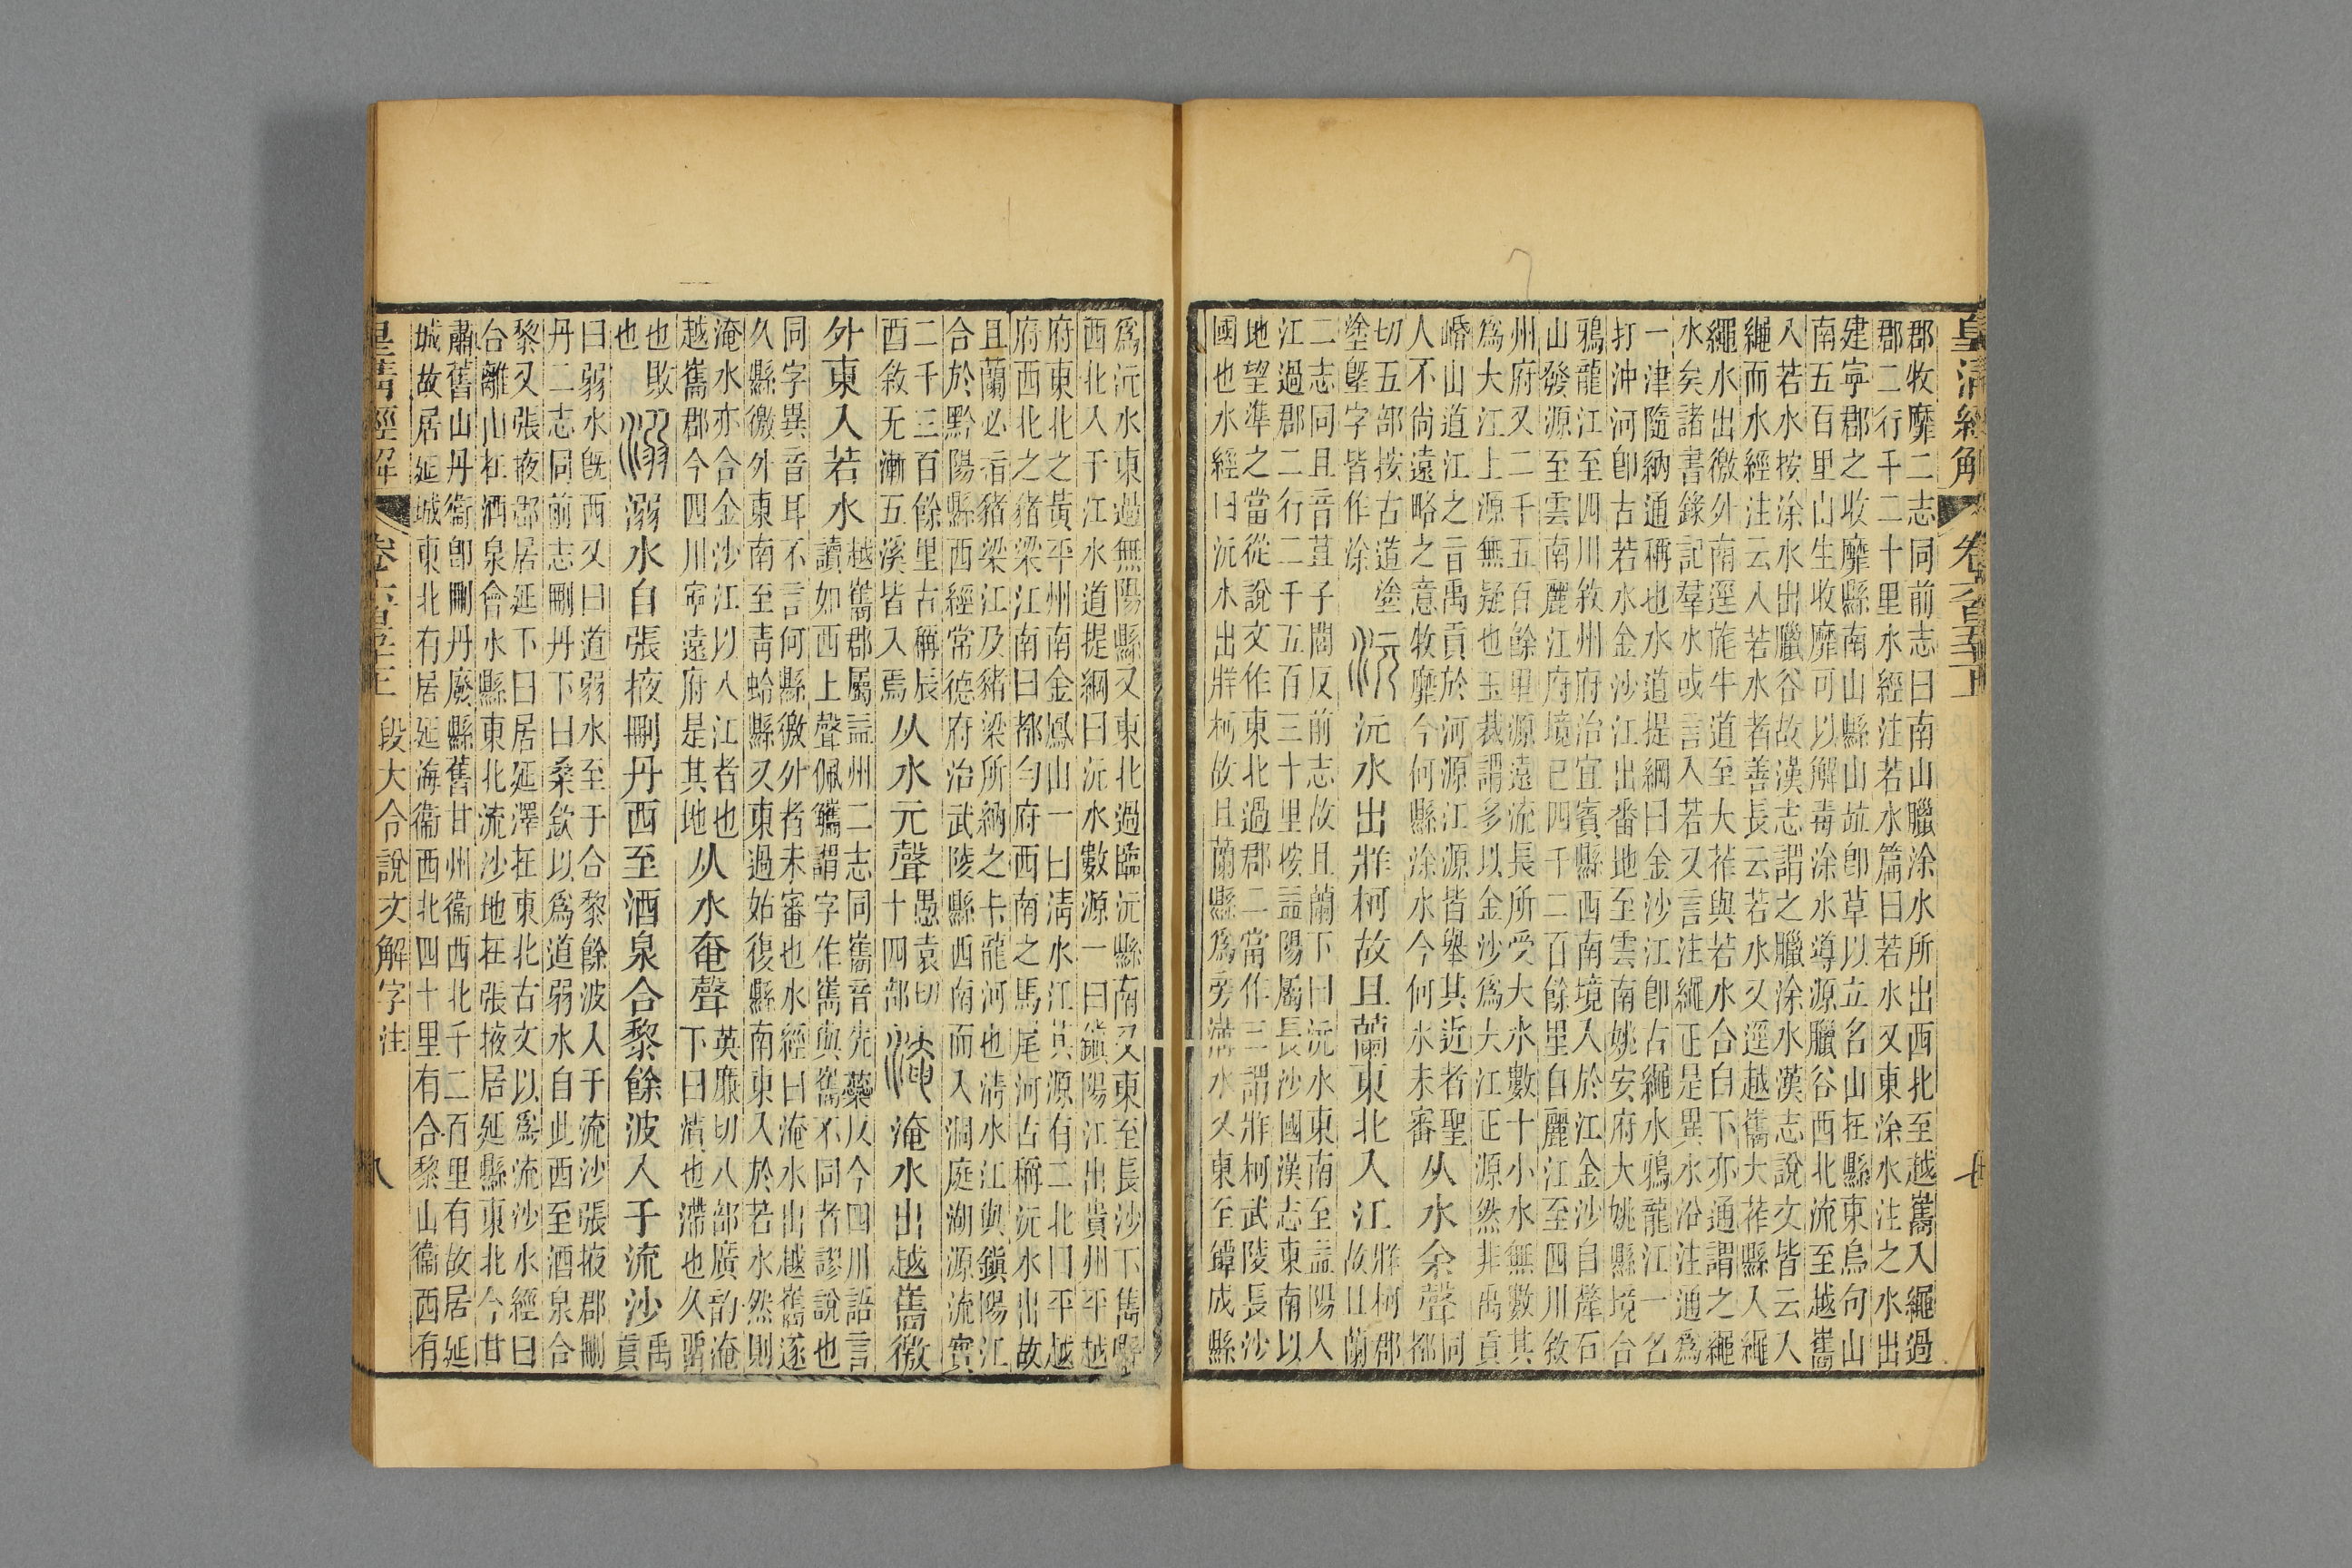 皇清經解
七
郡牧靡二志同前志曰南山臘涂水所出西北至越巂入繩過
郡二行千二十里水經注若水篇曰若水又東涂水注之水出
建寧郡之收靡縣南山縣山竝卽草以立名山在縣東烏句山
南五百里山生收靡可以解毒涂水導源臘谷西北流至越巂
入若水按涂水出臘谷故漢志謂之臘涂水漢志說文皆云入
繩而水經注云入若水者善長云若水又逕越巂大莋縣入繩
繩水出徼外南逕旄牛道至大莋與若水合自下亦通謂之繩
水矣諸書錄記羣水或言入若又言注繩正是異水沿注通爲
一津隨納通稱也水道提綱曰金沙江卽古繩水鴉龍江一名
打沖河卽古若水金沙江出番地至雲南姚安府大姚縣境合
鴉龍江至四川敘州府治宜賓縣西南境入於江金沙自犛石
山發源至雲南麗江府境已四千二百餘里自麗江至四川敘
州府又二千五百餘里源遠流長所受大水數十小水無數其
爲大江上源無疑也玉裁謂多以金沙爲大江正源然非禹貢
㟭山道江之言禹貢於河源江源皆舉其近者聖
人不尚遠略之意牧靡今何縣涂水今何水未審
从水余聲
同都
切五部按古道塗
塗塈字皆作涂
沅 沅水出牂柯故且蘭東北入江
牂柯郡
故且蘭
二志同且音苴子閭反前志故且蘭下曰沅水東南至益陽入
江過郡二行二千五百三十里按益陽屬長沙國漢志東南以
地望準之當從說文作東北過郡二當作三謂牂柯武陵長沙
國也水經曰沅水出牂柯故且蘭縣爲旁溝水又東至鐔成縣
爲沅水東過無陽縣又東北過臨沅縣南又東至長沙下雋縣
西北入于江水道提綱曰沅水數源一曰鎮陽江出貴州平越
府東北之黃平州南金鳳山一曰淸水江其源有二北曰平越
府西北之豬梁江南曰都勻府西南之馬尾河古稱沅水出故
且蘭必指豬梁江及豬梁所納之卡龍河也淸水江與鎮陽江
合於黔陽縣西經常德府治武陵縣西南而入洞庭湖源流實
二千三百餘里古稱辰
酉敘无漸五溪皆入焉
从水元聲
愚袁切
十四部
淹 淹水出越巂徼
外東入若水
越巂郡屬益州二志同巂音先蘂反今四川語言
讀如西上聲佩觿謂字作嶲與巂不同者謬說也
同字異音耳不言何縣徼外者未審也水經曰淹水出越巂遂
久縣徼外東南至靑蛉縣又東過姑復縣南東入於若水然則
淹水亦合金沙江以入江者也
越巂郡今四川寧遠府是其地
从水奄聲
英廉切八部廣韵淹
下曰漬也滯也久留
也敗
也
溺 溺水自張掖刪丹西至酒泉合黎餘波入于流沙
禹
貢
曰弱水旣西又曰道弱水至于合黎餘波入于流沙張掖郡刪
丹二志同前志刪丹下曰桑欽以爲道弱水自此西至酒泉合
黎又張掖郡居延下曰居延澤在東北古文以爲流沙水經曰
合離山在酒泉會水縣東北流沙地在張掖居延縣東北今甘
肅舊山丹衞卽刪丹廢縣舊甘州衞西北千二百里有故居延
城故居延城東北有居延海衞西北四十里有合黎山衞西有
皇淸經解
段大令說文解字注
八